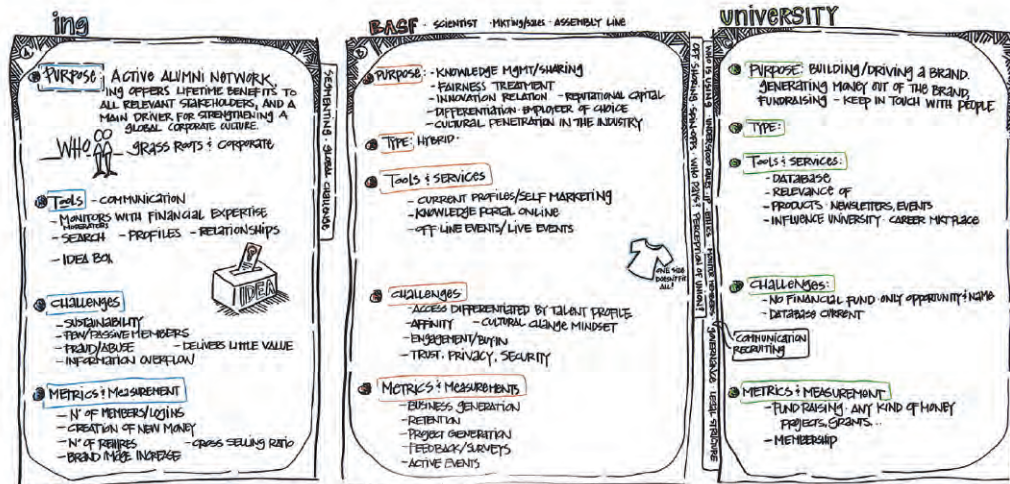 ing
A
PURPOSE: ACTIVE ALUMNI NETWORK
ING OFFERS LIFETIME BENEFITS TO
ALL RELEVANT STAKEHOLDERS, AND A
MAIN DRIVER FOR STRENGTHENING A
GLOBAL CORPORATE CULTURE.
WHO
GRASS ROOTS & CORPORATE
TOOLS - COMMUNICATION
- MONITORS WITH FINANCIAL EXPERTISE
MODERATORS
- SEARCH - PROFILES - RELATIONSHIPS
- IDEA BOX
IDEA
CHALLENGES
- SUSTAINABILITY
- FEW/PASSIVE MEMBERS
- FRAUD/ABUSE - DELIVERS LITTLE VALUE
- INFORMATION OVERFLOW
METRICS & MEASUREMENT
- N° OF MEMBERS/LOGINS
- CREATION OF NEW MONEY
- N° OF REHIRES - CROSS SELLING RATIO
- BRAND IMAGE INCREASE
SEGMENTING · GLOBAL CHALLENGE
BASF - SCIENTIST · MKTING/SALES - ASSEMBLY LINE
B
PURPOSE: - KNOWLEDGE MGMT/SHARING
- FAIRNESS TREATMENT
- INNOVATION RELATION - REPUTATIONAL CAPITAL
- DIFFERENTIATION · EMPLOYER OF CHOICE
- CULTURAL PENETRATION IN THE INDUSTRY
TYPE: HYBRID
TOOLS & SERVICES
- CURRENT PROFILES/SELF MARKETING
- KNOWLEDGE PORTAL ONLINE
- OFF-LINE EVENTS/LIVE EVENTS
ONE SIZE
DOESN'T FIT
ALL!
CHALLENGES
- ACCESS DIFFERENTIATED BY TALENT PROFILE
- AFFINITY - CULTURAL CHANGE MINDSET
- ENGAGEMENT/BUY IN
- TRUST, PRIVACY, SECURITY
METRICS & MEASUREMENTS
- BUSINESS GENERATION
- RETENTION
- PROJECT GENERATION
- FEEDBACK/SURVEYS
- ACTIVE EVENTS
OFF SHORING · SPIN-OFFS · WHO PAYS? PERCEPTION OF UNION?
WHO IS USING
GOVERNANCE · LEGAL STRUCTURE
UNIVERSITY
PURPOSE: BUILDING/DRIVING A BRAND.
GENERATING MONEY OUT OF THE BRAND,
FUNDRAISING - KEEP IN TOUCH WITH PEOPLE
TYPE:
TOOLS & SERVICES:
- DATABASE
- RELEVANCE OF
- PRODUCTS · NEWSLETTERS, EVENTS
- INFLUENCE UNIVERSITY · CAREER MKTPLACE
CHALLENGES:
- NO FINANCIAL FUND · ONLY OPPORTUNITY & NAME
- DATABASE CURRENT
COMMUNICATION
RECRUITING
METRICS & MEASUREMENT
- FUND RAISING · ANY KIND OF MONEY
PROJECTS, GRANTS...
- MEMBERSHIP